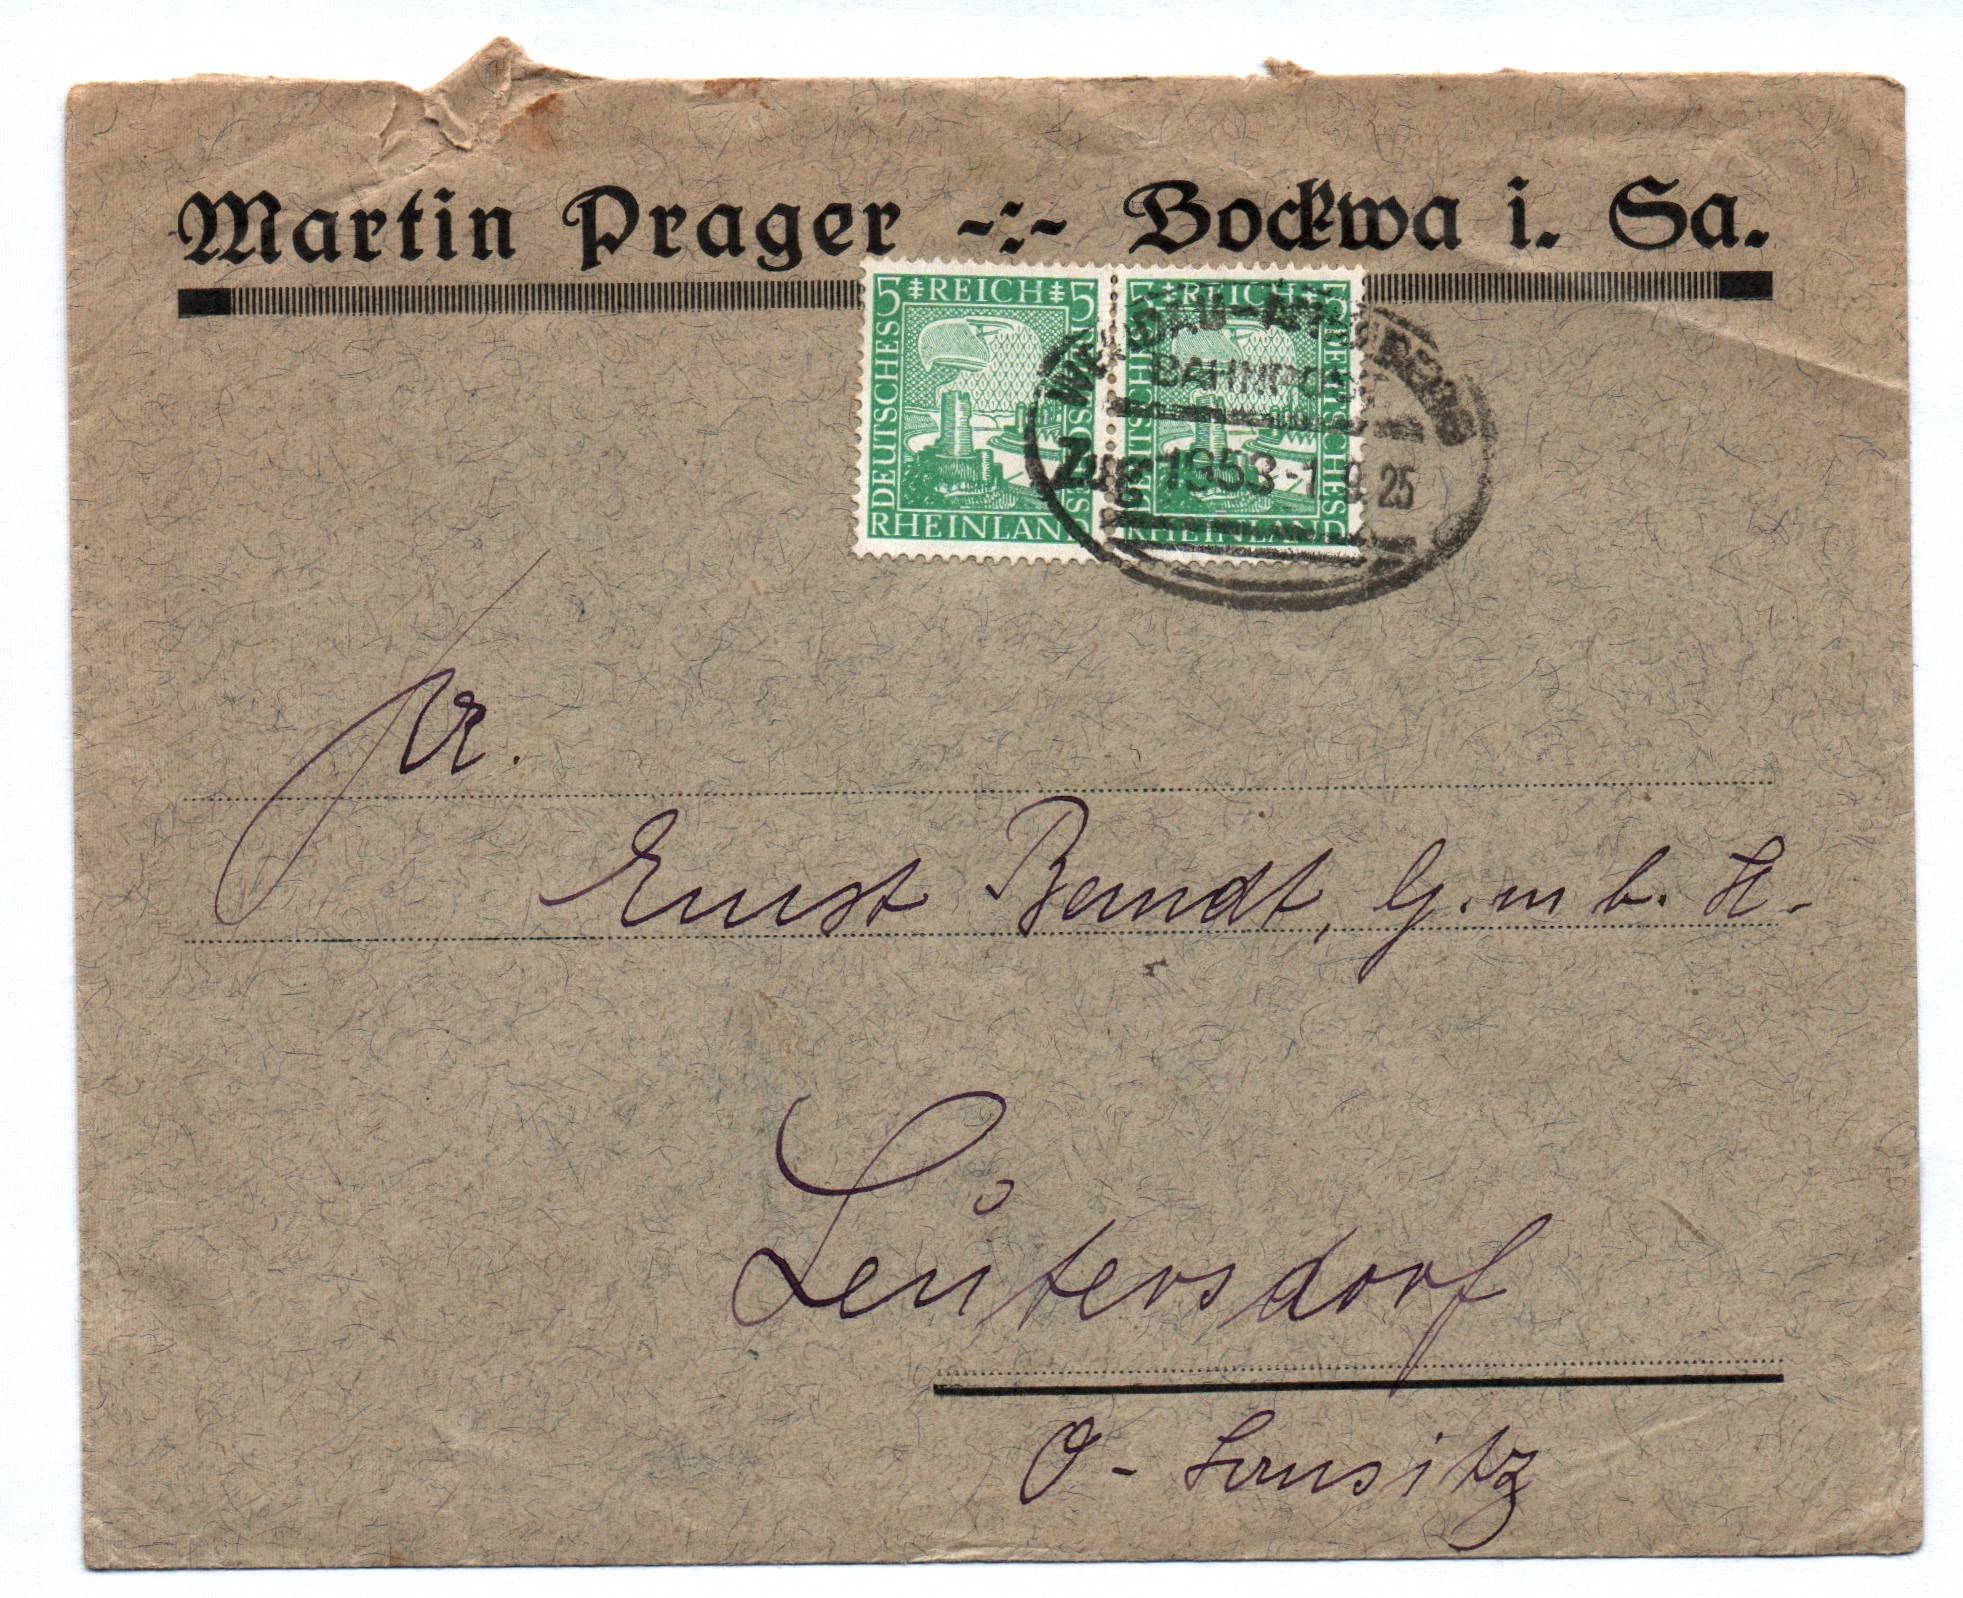 Martin Prager -:- Bockwa i. Sa.
5 REICH 5
DEUTSCHES
RHEINLAND
5 REICH 5
DEUTSCHES
RHEINLAND
BAHNPOST
ZUG 1953 -1 9. 25
Fa.
Ernst Berndt, G. m b. H.
Leutersdorf
O- Lausitz